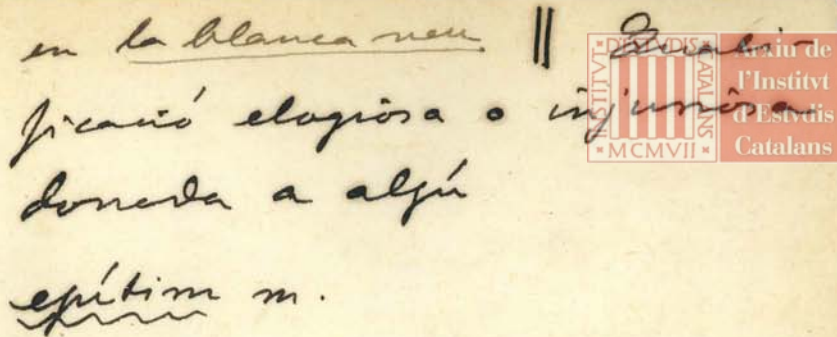 en la blanca neu. || Quali-
ficació elogiosa o injuriosa
donada a algú
epítim m.
INSTITVT D'ESTVDIS CATALANS
MCMVII
Arxiu de
l'Institvt
d'Estvdis
Catalans